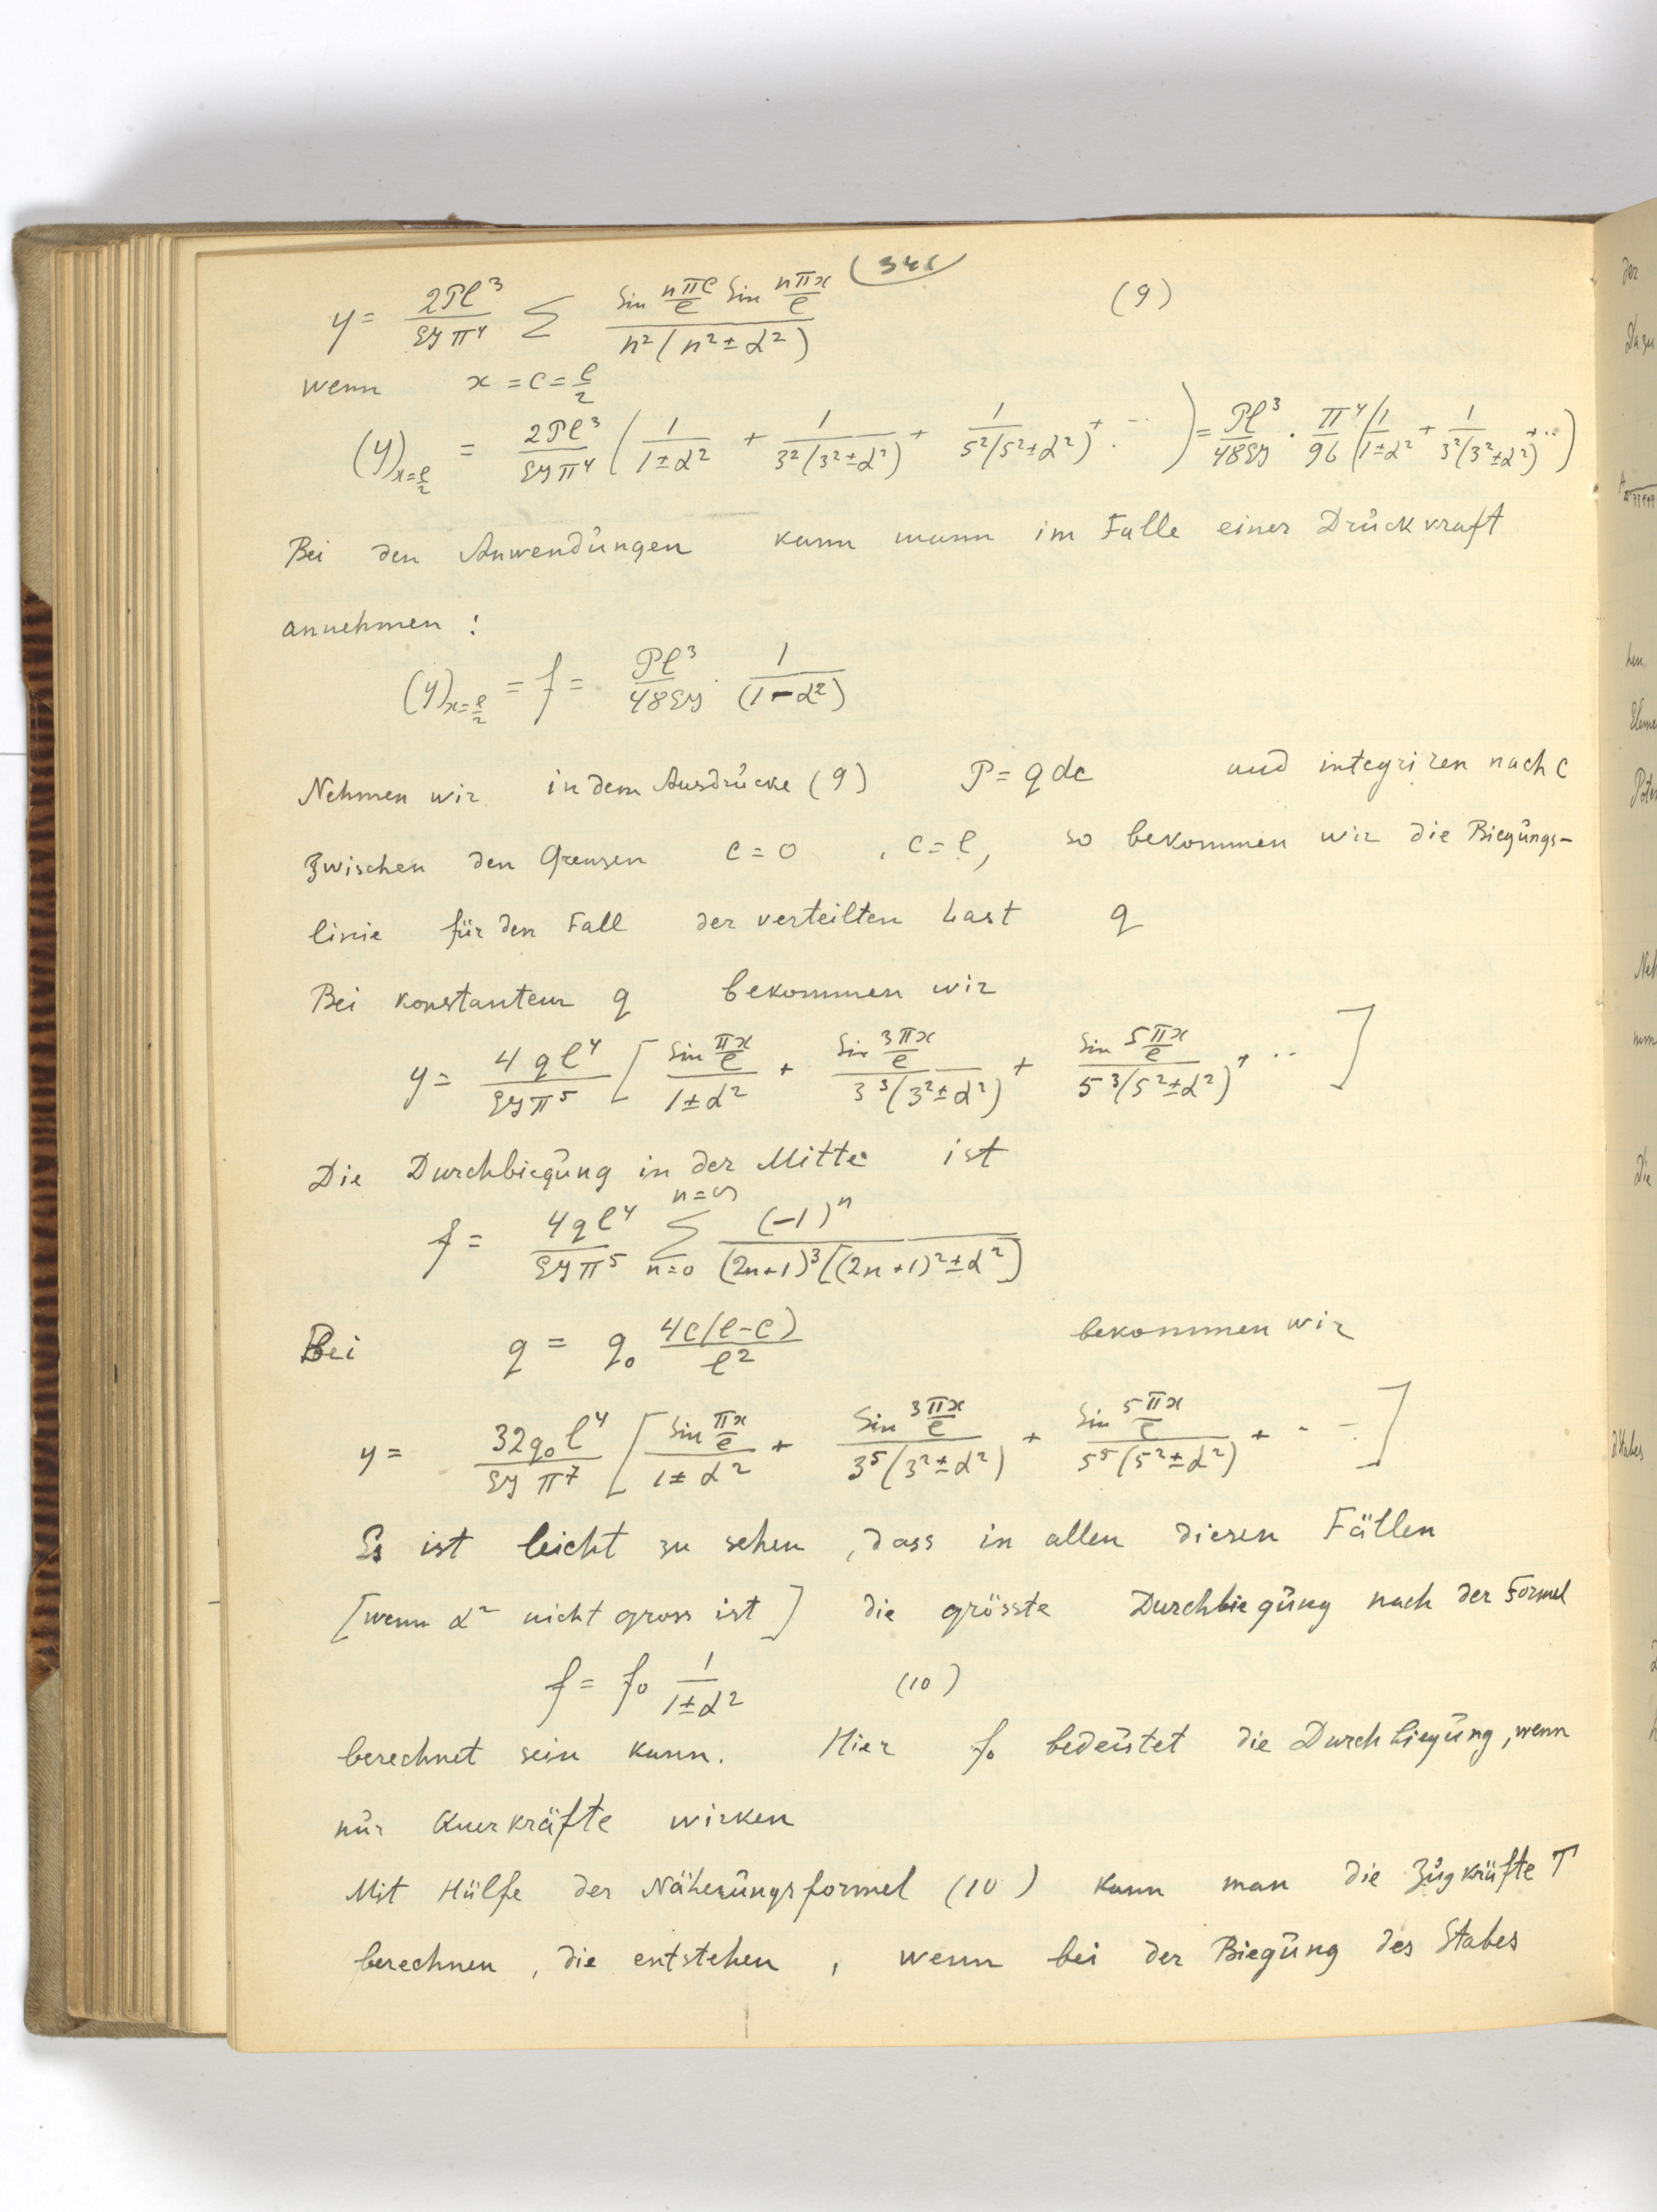 y = 2Pl³/EJπ⁴ Σ sin nπc/l sin nπx/l / n²(n² ± α²) (9)
wenn x = c = l/2
(y)x=l/2 = 2Pl³/EJπ⁴ (1/1±α² + 1/3²(3²±α²) + 1/5²(5²±α²) + ··· ) = Pl³/48EJ · π⁴/96 (1/1±α² + 1/3²(3²±α²) + ··)
Bei den Anwendungen kann mann im Falle einer Druckkraft
annehmen :
(y)x=l/2 = f = Pl³/48EJ · 1/(1-α²)
Nehmen wir in dem Ausdrucke (9) P = q dc und integriren nach c
zwischen den Grenzen c = 0 , c = l, so bekommen wir die Biegungs-
linie für den Fall der verteilten Last q
Bei konstantem q bekommen wir
y = 4 ql⁴/EJπ⁵ [ sin πx/l / 1±α² + sin 3πx/l / 3³(3²±α²) + sin 5πx/l / 5³(5²±α²) + ·· ]
Die Durchbiegung in der Mitte ist
f = 4ql⁴/EJπ⁵ Σ n=0 n=∞ (-1)ⁿ / (2n+1)³[(2n+1)²±α²]
Bei q = q₀ 4c(l-c)/l² bekommen wir
y = 32q₀l⁴/EJπ⁷ [ sin πx/l / 1±α² + sin 3πx/l / 3⁵(3²±α²) + sin 5πx/l / 5⁵(5²±α²) + · - ]
Es ist leicht zu sehen , dass in allen diesen Fällen
[wenn α² nicht gross ist ] die grösste Durchbiegung nach der Formel
f = f₀ 1/1±α² (10)
berechnet sein kann. Hier f₀ bedeutet die Durchbiegung, wenn
nur Querkräfte wirken
Mit Hülfe der Näherungsformel (10) kann man die Zugkräfte T
berechnen , die entstehen , wenn bei der Biegung des Stabes